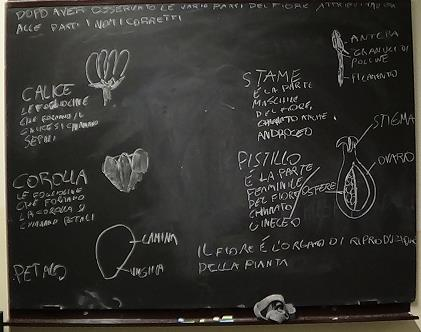 DOPO AVER OSSERVATO LE VARIE PARTI DEL FIORE
ALLE PARTI I NOMI CORRETTI
CALICE
LE FOGLIOLINE
CHE FORMANO IL
CALICE SI CHIAMANO
SEPALI
COROLLA
LE FOGLIOLINE
CHE FORMANO
LA COROLLA SI
CHIAMANO PETALI
PETALO
LAMINA
UNGHIA
STAME
È LA PARTE
MASCHILE
DEL FIORE,
CHIAMATO ANCHE
ANDROCEO
ANTERA
GRANULI DI
POLLINE
FILAMENTO
PISTILLO
È LA PARTE
FEMMINILE
DEL FIORE
CHIAMATO
GINECEO
STIGMA
OVARIO
IL FIORE È L'ORGANO DI RIPRODUZIONE
DELLA PIANTA